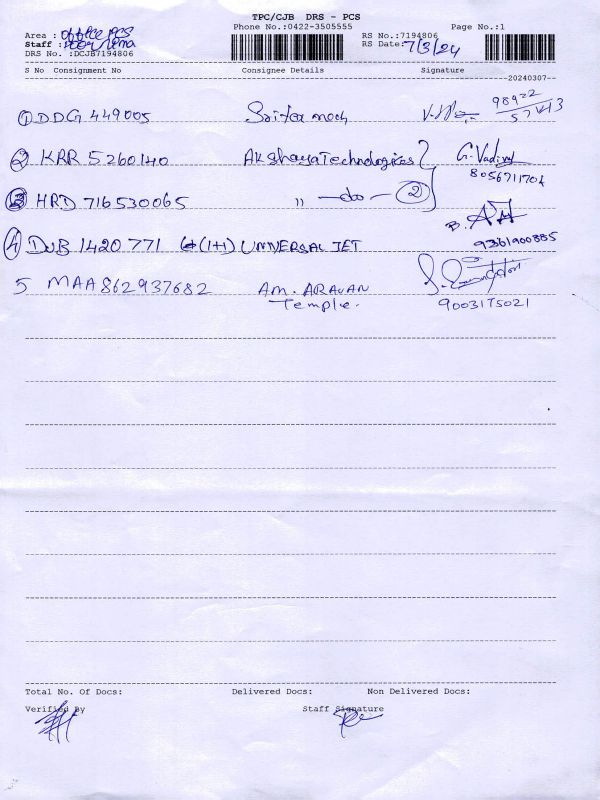 TPC/CJB DRS - PCS
Phone No.:0422-3505555 Page No.:1
Area : office PCS
RS No.:7194806
Staff :
RS Date: 7/3/24
DRS No. :DCJB7194806
S No Consignment No Consignee Details Signature
20240307
1 DDG 449005 98922
57413
2 KRR 5260140 Akshaya Technologies G. Vadivel
8056711704
3 HRD 716530065 " —do— 2
B.
4 DUB 1420 771 (1+1) UNIVERSAL JET 9361900885
5 MAA 862937682 AM. ARAVAN
Temple. 9003175021
Total No. Of Docs: Delivered Docs: Non Delivered Docs:
Verified By Staff Signature